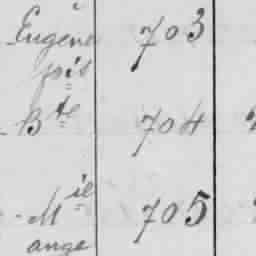 Eugene 703
pois
Bte 704
Mie 705
ange